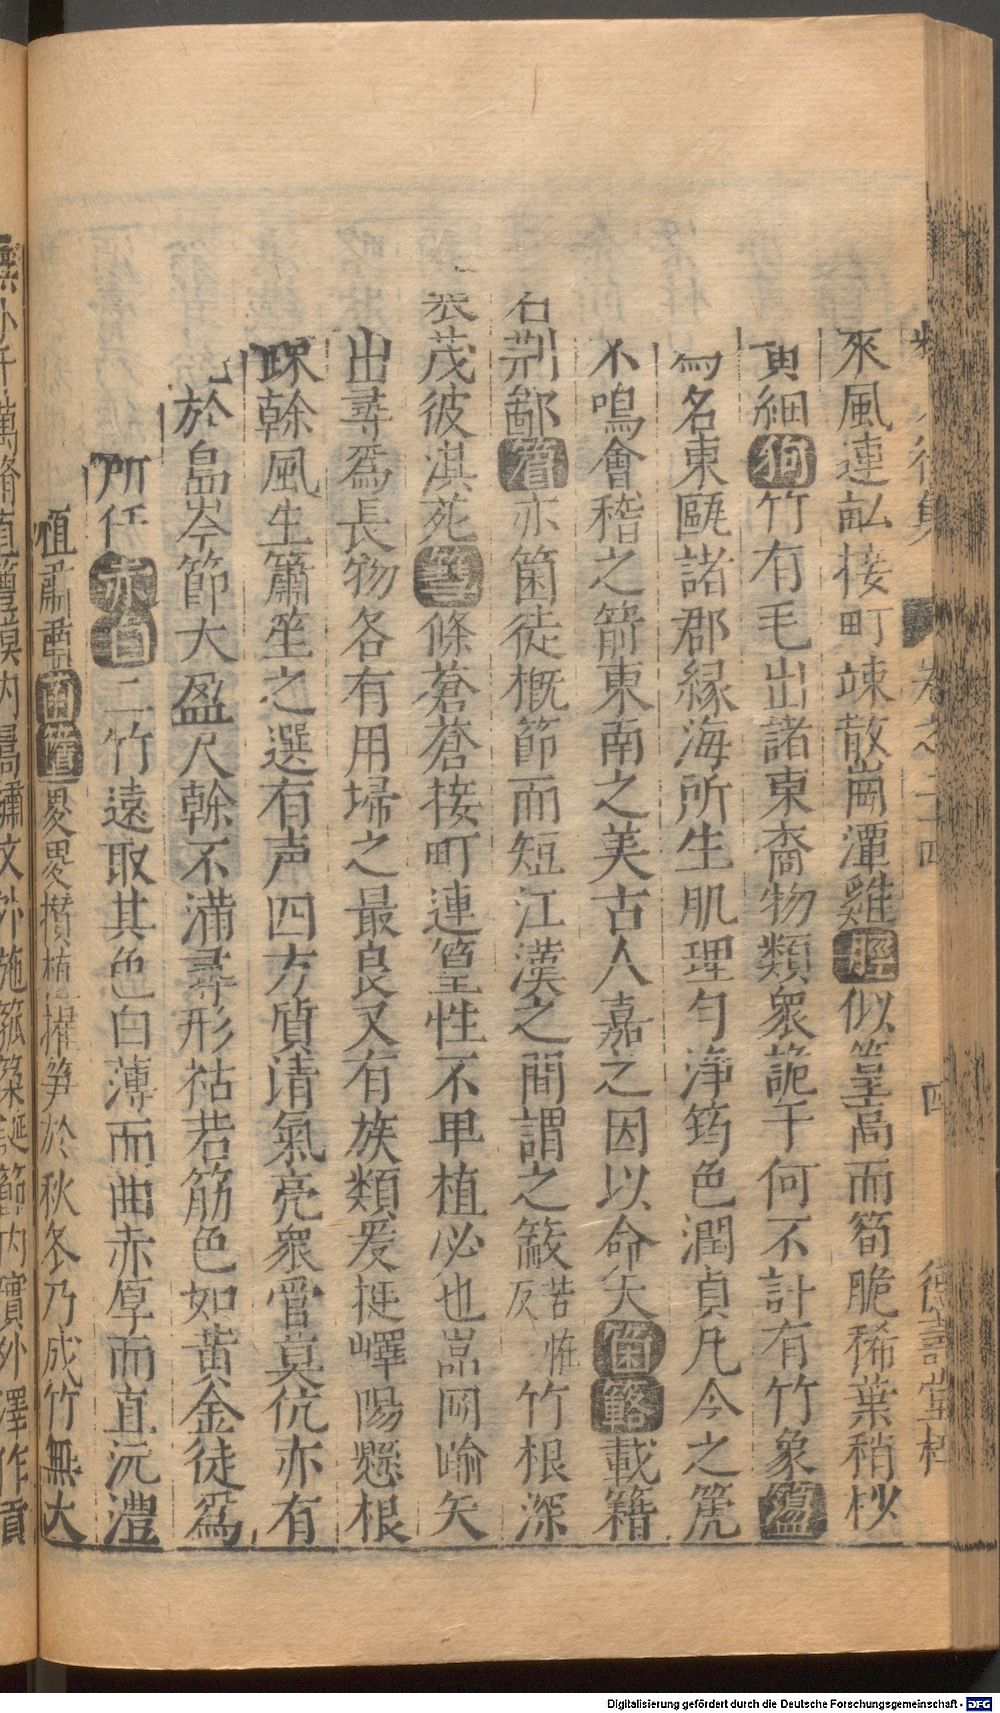 來風連畝接町竦散崗潭雞脛似篁高而筍脆稀葉稍杪
黃細狗竹有毛出諸東裔物類衆詭于何不計有竹象籚
爲名東甌諸郡緣海所生肌理勻淨筠色潤貞凡今之箎
不鳴會稽之箭東南之美古人嘉之因以命矢箘簵載籍
荊鄱䈽亦箘徒概節而短江漢之間謂之䉛苦恠反竹根深
茂彼淇苑篃條蒼蒼接町連篁性不卑植必也嵓岡喻矢
出尋爲長物各有用埽之最良又有族類爰挺嶧陽懸根
竦幹風生簫笙之選有声四方質清氣亮衆管莫伉亦有
於島岑節大盈尺幹不滿尋形枯若筋色如黃金徒爲
所任赤白二竹遠取其色白薄而曲赤厚而直沅澧
植肅肅䈏𥳍罢罢攢植擢筍於秋冬乃成竹無大
卷之二十四
四
德壽堂梓
Digitalisierung gefördert durch die Deutsche Forschungsgemeinschaft - DFG